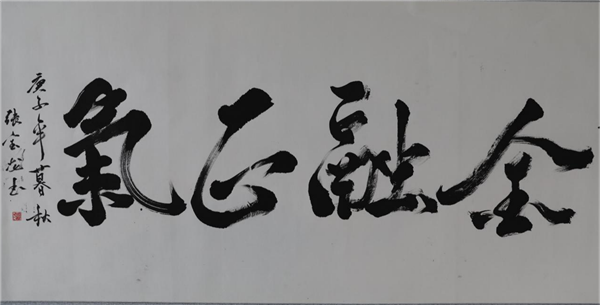 金融正氣
庚子年暮秋
張金